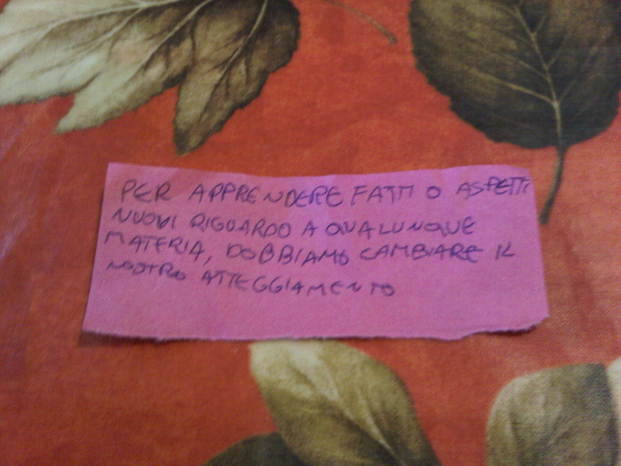 PER APPRENDERE FATTI O ASPETTI
NUOVI RIGUARDO A QUALUNQUE
MATERIA, DOBBIAMO CAMBIARE IL
NOSTRO ATTEGGIAMENTO